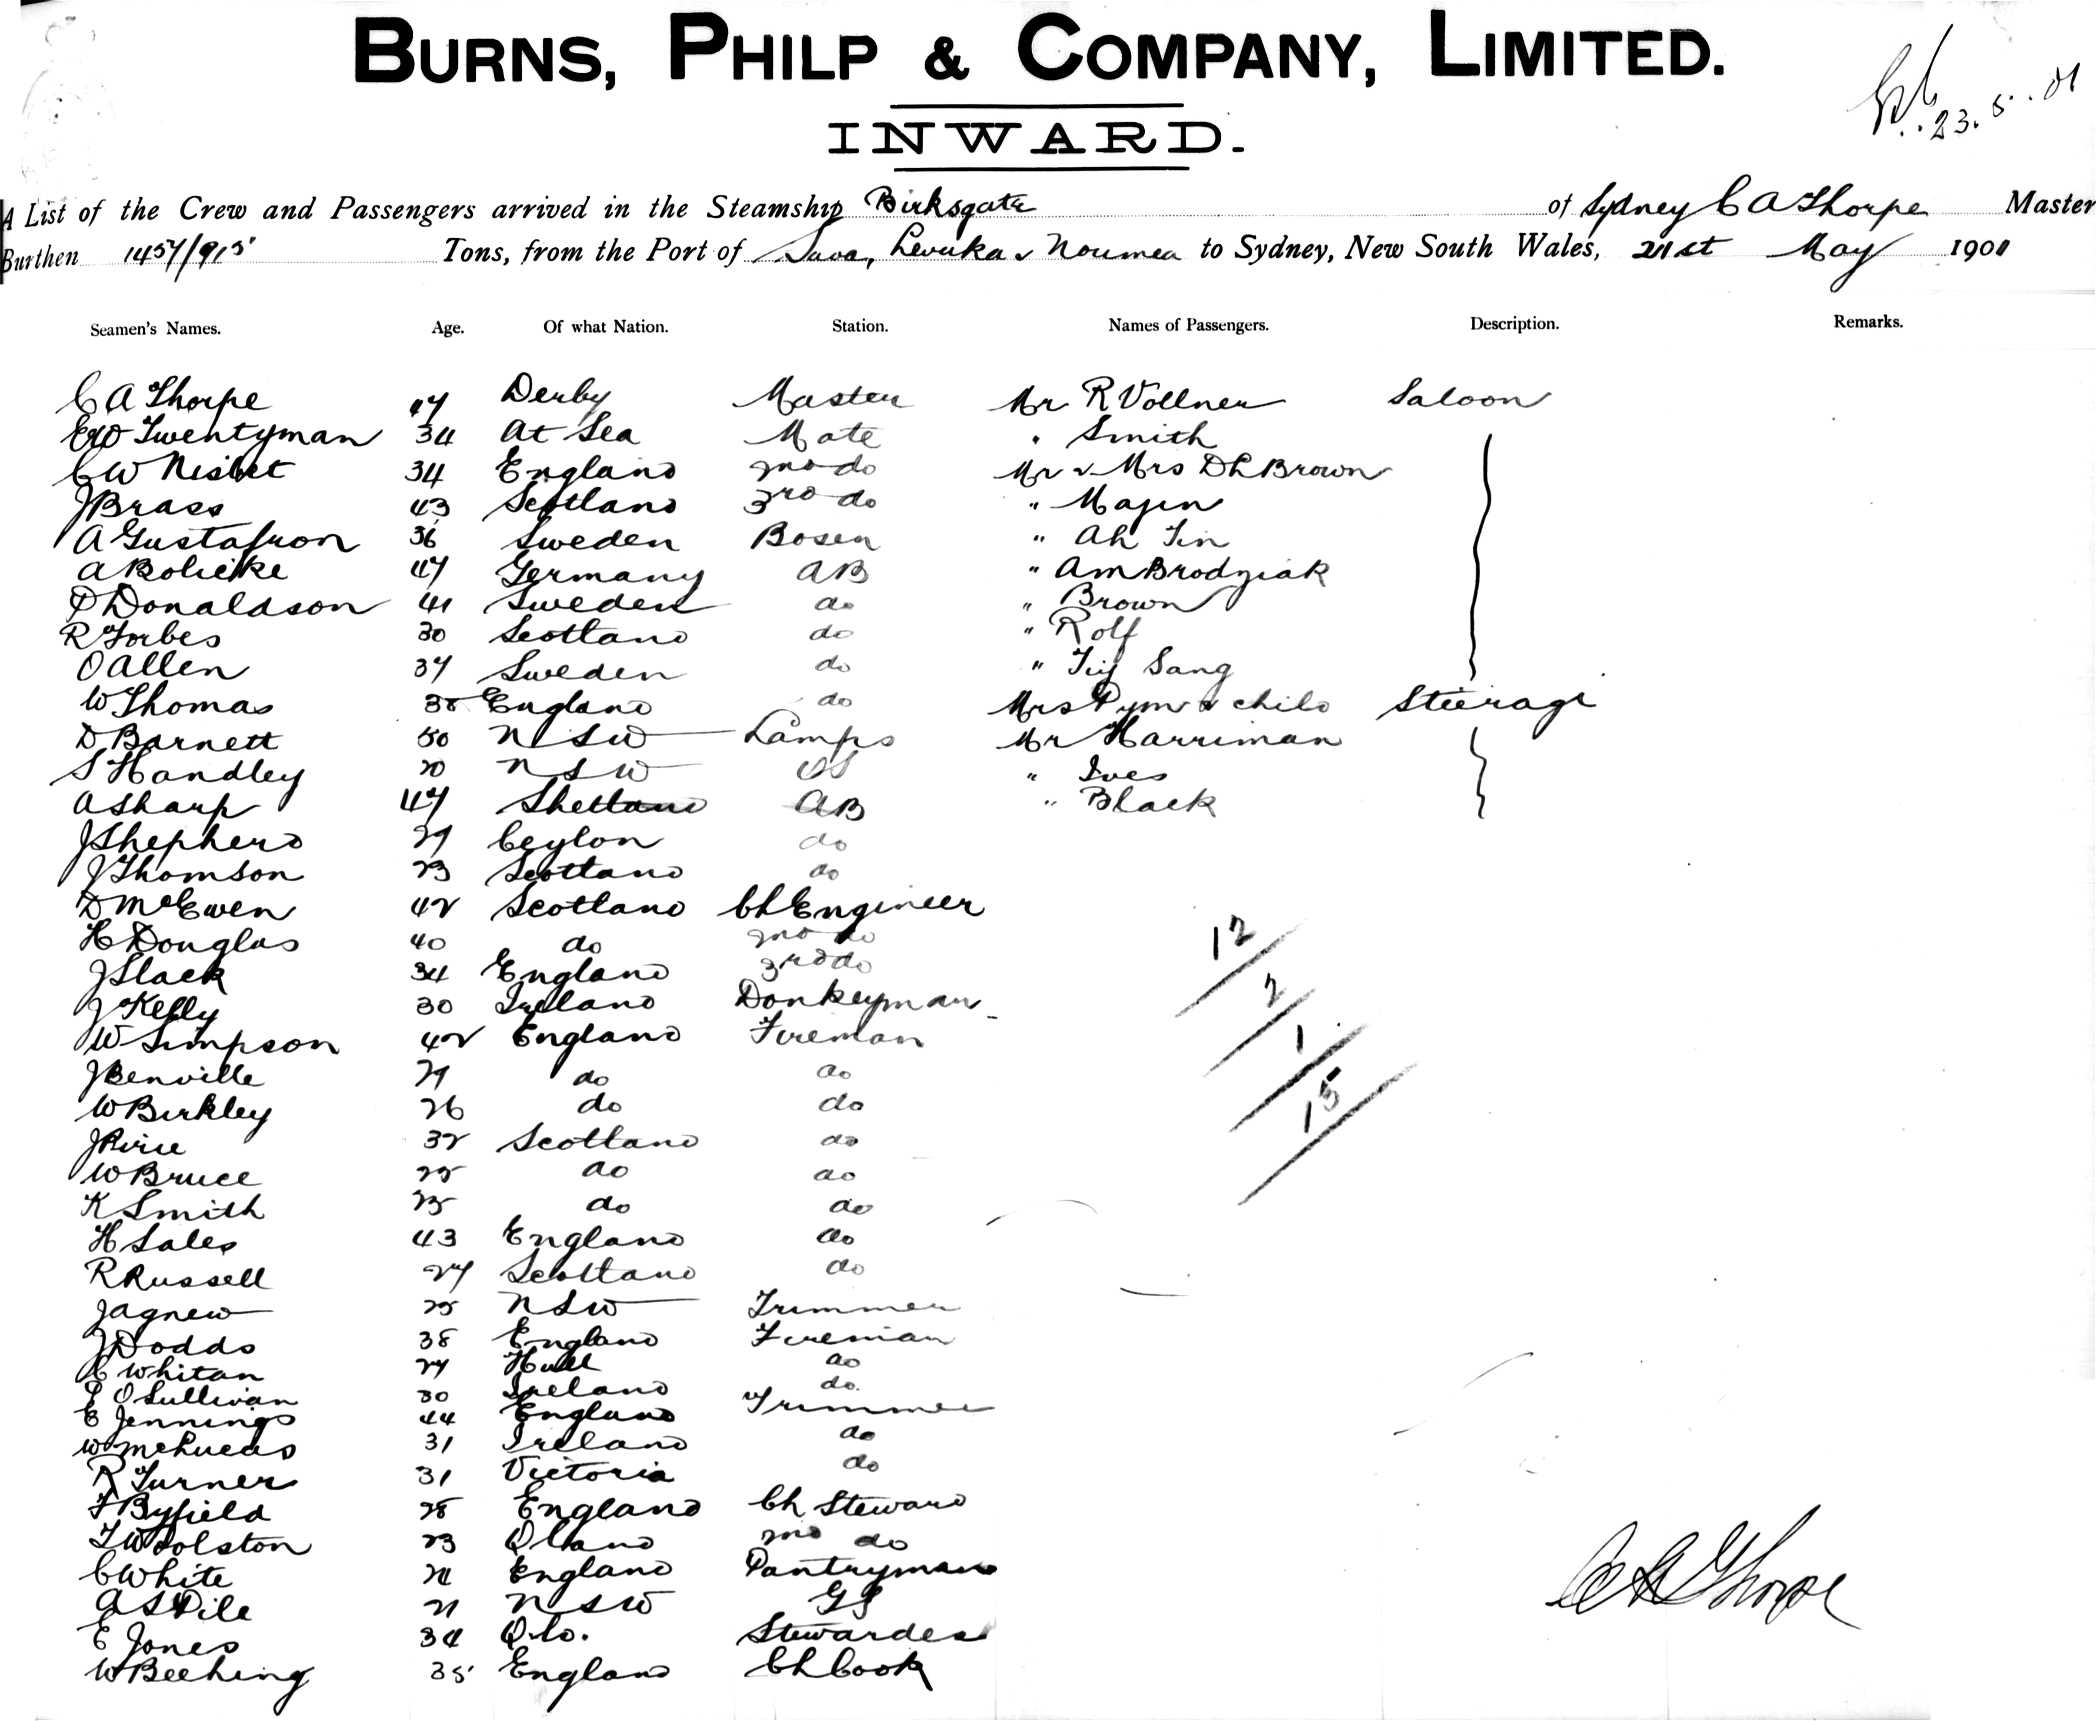 BURNS, PHILP & COMPANY, LIMITED.
INWARD.
23.5..01
A List of the Crew and Passengers arrived in the Steamship Birksgate of Sydney C A Thorpe Master
Burthen 1457/915 Tons, from the Port of Suva, Levuka & Noumea to Sydney, New South Wales, 21st May 1901
Seamen's Names. Age. Of what Nation. Station. Names of Passengers. Description. Remarks.
C A Thorpe 47 Derby Master Mr R Vollner Saloon
Twentyman 34 At Sea Mate " Smith
C W Nisbet 34 England 2nd do Mr & Mrs D L Brown
J Brass 43 Scotland 3rd do " Majin
A Gustafson 36 Sweden Bosen " Ah Tin
A Bolicke 47 Germany AB " A M Brodziak
D Donaldson 41 Sweden do " Brown
R Forbes 30 Scotland do " Rolf
O Allen 37 Sweden do " Sang
W Thomas 38 England do Mrs Pym & child Steerage
D Barnett 50 NSW Lamps Mr Harriman
S Handley 20 NSW OS " Ives
A Sharp 47 Shetland AB " Black
J Shepherd 29 Ceylon do
J Thomson 23 Scotland do
D McEwen 42 Scotland Ch Engineer
H Douglas 40 do 2nd do
J Slack 34 England 3rd do
J Kelly 30 Ireland Donkeyman
W Simpson 42 England Fireman
J Benville 29 do do
W Birkley 26 do do
J Pirie 32 Scotland do
W Bruce 25 do do
K Smith 25 do do
H Sales 43 England do
R Russell 27 Scotland do
J Agnew 25 NSW Trimmer
J Dodds 38 England Fireman
C Whitan 27 Hull do
E O Sullivan 30 Ireland do.
E Jennings 44 England Trimmer
W McLucas 31 Ireland do
R Turner 31 Victoria do
F Byfield 28 England Ch Steward
T W Tolston 23 Qland 2nd do
C White 21 England Pantryman
A S Pile 21 NSW GS
E Jones 34 Q.ld. Stewardess
W Beehing 35 England Ch Cook
12
2
1
15
C A Thorpe